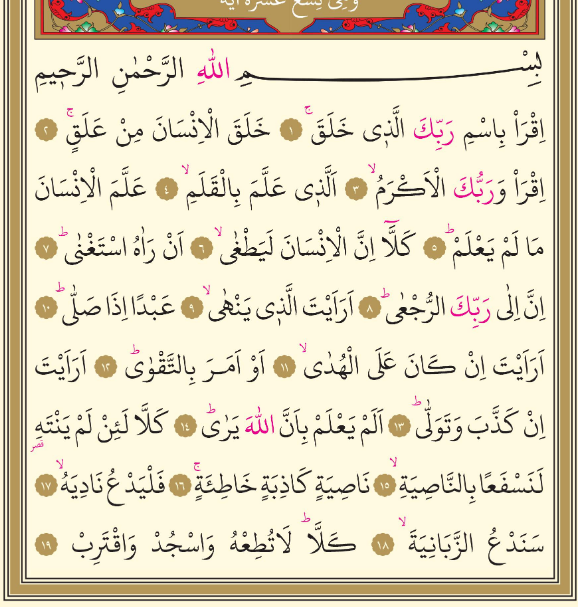 وَهِىَ تِسْعَ عَشْرَةَ اٰيَةً
بِسْمِ اللّٰهِ الرَّحْمٰنِ الرَّح۪يمِ
اِقْرَاْ بِاسْمِ رَبِّكَ الَّذ۪ى خَلَقَۚ ﴿١﴾ خَلَقَ الْاِنْسَانَ مِنْ عَلَقٍۚ ﴿٢﴾
اِقْرَاْ وَرَبُّكَ الْاَكْرَمُۙ ﴿٣﴾ اَلَّذ۪ى عَلَّمَ بِالْقَلَمِۙ ﴿٤﴾ عَلَّمَ الْاِنْسَانَ
مَا لَمْ يَعْلَمْۜ ﴿٥﴾ كَلَّٓا اِنَّ الْاِنْسَانَ لَيَطْغٰىۙ ﴿٦﴾ اَنْ رَاٰهُ اسْتَغْنٰىۜ ﴿٧﴾
اِنَّ اِلٰى رَبِّكَ الرُّجْعٰىۜ ﴿٨﴾ اَرَاَيْتَ الَّذ۪ى يَنْهٰىۙ ﴿٩﴾ عَبْدًا اِذَا صَلّٰىۜ ﴿١٠﴾
اَرَاَيْتَ اِنْ كَانَ عَلَى الْهُدٰىۙ ﴿١١﴾ اَوْ اَمَرَ بِالتَّقْوٰىۜ ﴿١٢﴾ اَرَاَيْتَ
اِنْ كَذَّبَ وَتَوَلّٰىۜ ﴿١٣﴾ اَلَمْ يَعْلَمْ بِاَنَّ اللّٰهَ يَرٰىۜ ﴿١٤﴾ كَلَّا لَئِنْ لَمْ يَنْتَهِ
قصر
لَنَسْفَعًا بِالنَّاصِيَةِۙ ﴿١٥﴾ نَاصِيَةٍ كَاذِبَةٍ خَاطِئَةٍۚ ﴿١٦﴾ فَلْيَدْعُ نَادِيَهُۙ ﴿١٧﴾
سَنَدْعُ الزَّبَانِيَةَۙ ﴿١٨﴾ كَلَّاۜ لَا تُطِعْهُ وَاسْجُدْ وَاقْتَرِبْ ﴿١٩﴾